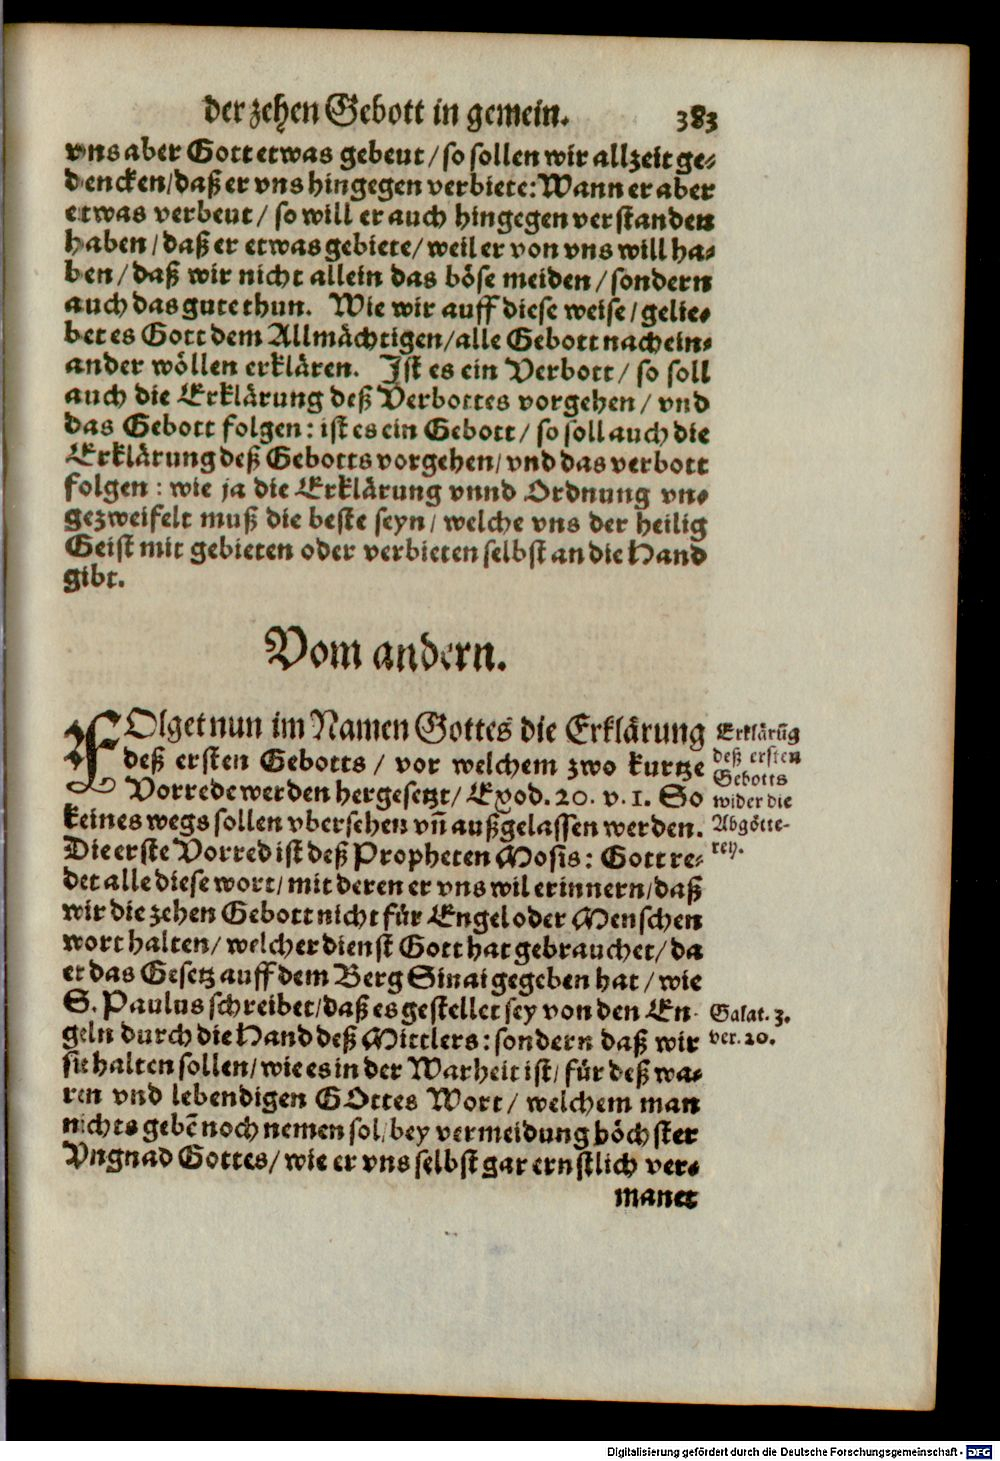 der zehen Gebott in gemein. 383
vns aber Gott etwas gebeut / so sollen wir allzeit ge-
dencken / daß er vns hingegen verbiete: Wann er aber
etwas verbeut / so will er auch hingegen verstanden
haben / daß er etwas gebiete / weil er von vns will ha-
ben / daß wir nicht allein das böse meiden / sondern
auch das gute thun. Wie wir auff diese weise / gelie-
bet es Gott dem Allmächtigen / alle Gebott nach ein-
ander wöllen erklären. Ist es ein Verbott / so soll
auch die Erklärung deß Verbottes vorgehen / vnd
das Gebott folgen: ist es ein Gebott / so soll auch die
Erklärung deß Gebotts vorgehen / vnd das verbott
folgen: wie ja die Erklärung vnnd Ordnung vn-
gezweifelt muß die beste seyn / welche vns der heilig
Geist mit gebieten oder verbieten selbst an die Hand
gibt.
Vom andern.
FOlget nun im Namen Gottes die Erklärung
deß ersten Gebotts / vor welchem zwo kurtze
Vorrede werden hergesetzt / Exod. 20. v. 1. So
keines wegs sollen vbersehen vñ außgelassen werden.
Die erste Vorred ist deß Propheten Mosis: Gott re-
det alle diese wort / mit deren er vns wil erinnern / daß
wir die zehen Gebott nicht für Engel oder Menschen
wort halten / welcher dienst Gott hat gebrauchet / da
er das Gesetz auff dem Berg Sinai gegeben hat / wie
S. Paulus schreibet / daß es gestellet sey von den En-
geln durch die Hand deß Mittlers: sondern daß wir
sie halten sollen / wie es in der Warheit ist / für deß wa-
ren vnd lebendigen GOttes Wort / welchem man
nichts gebẽ noch nemen sol / bey vermeidung höchster
Vngnad Gottes / wie er vns selbst gar ernstlich ver-
manet
Erklärũg
deß ersten
Gebotts
wider die
Abgötte-
rey.
Galat. 3.
ver. 20.
Digitalisierung gefördert durch die Deutsche Forschungsgemeinschaft - DFG